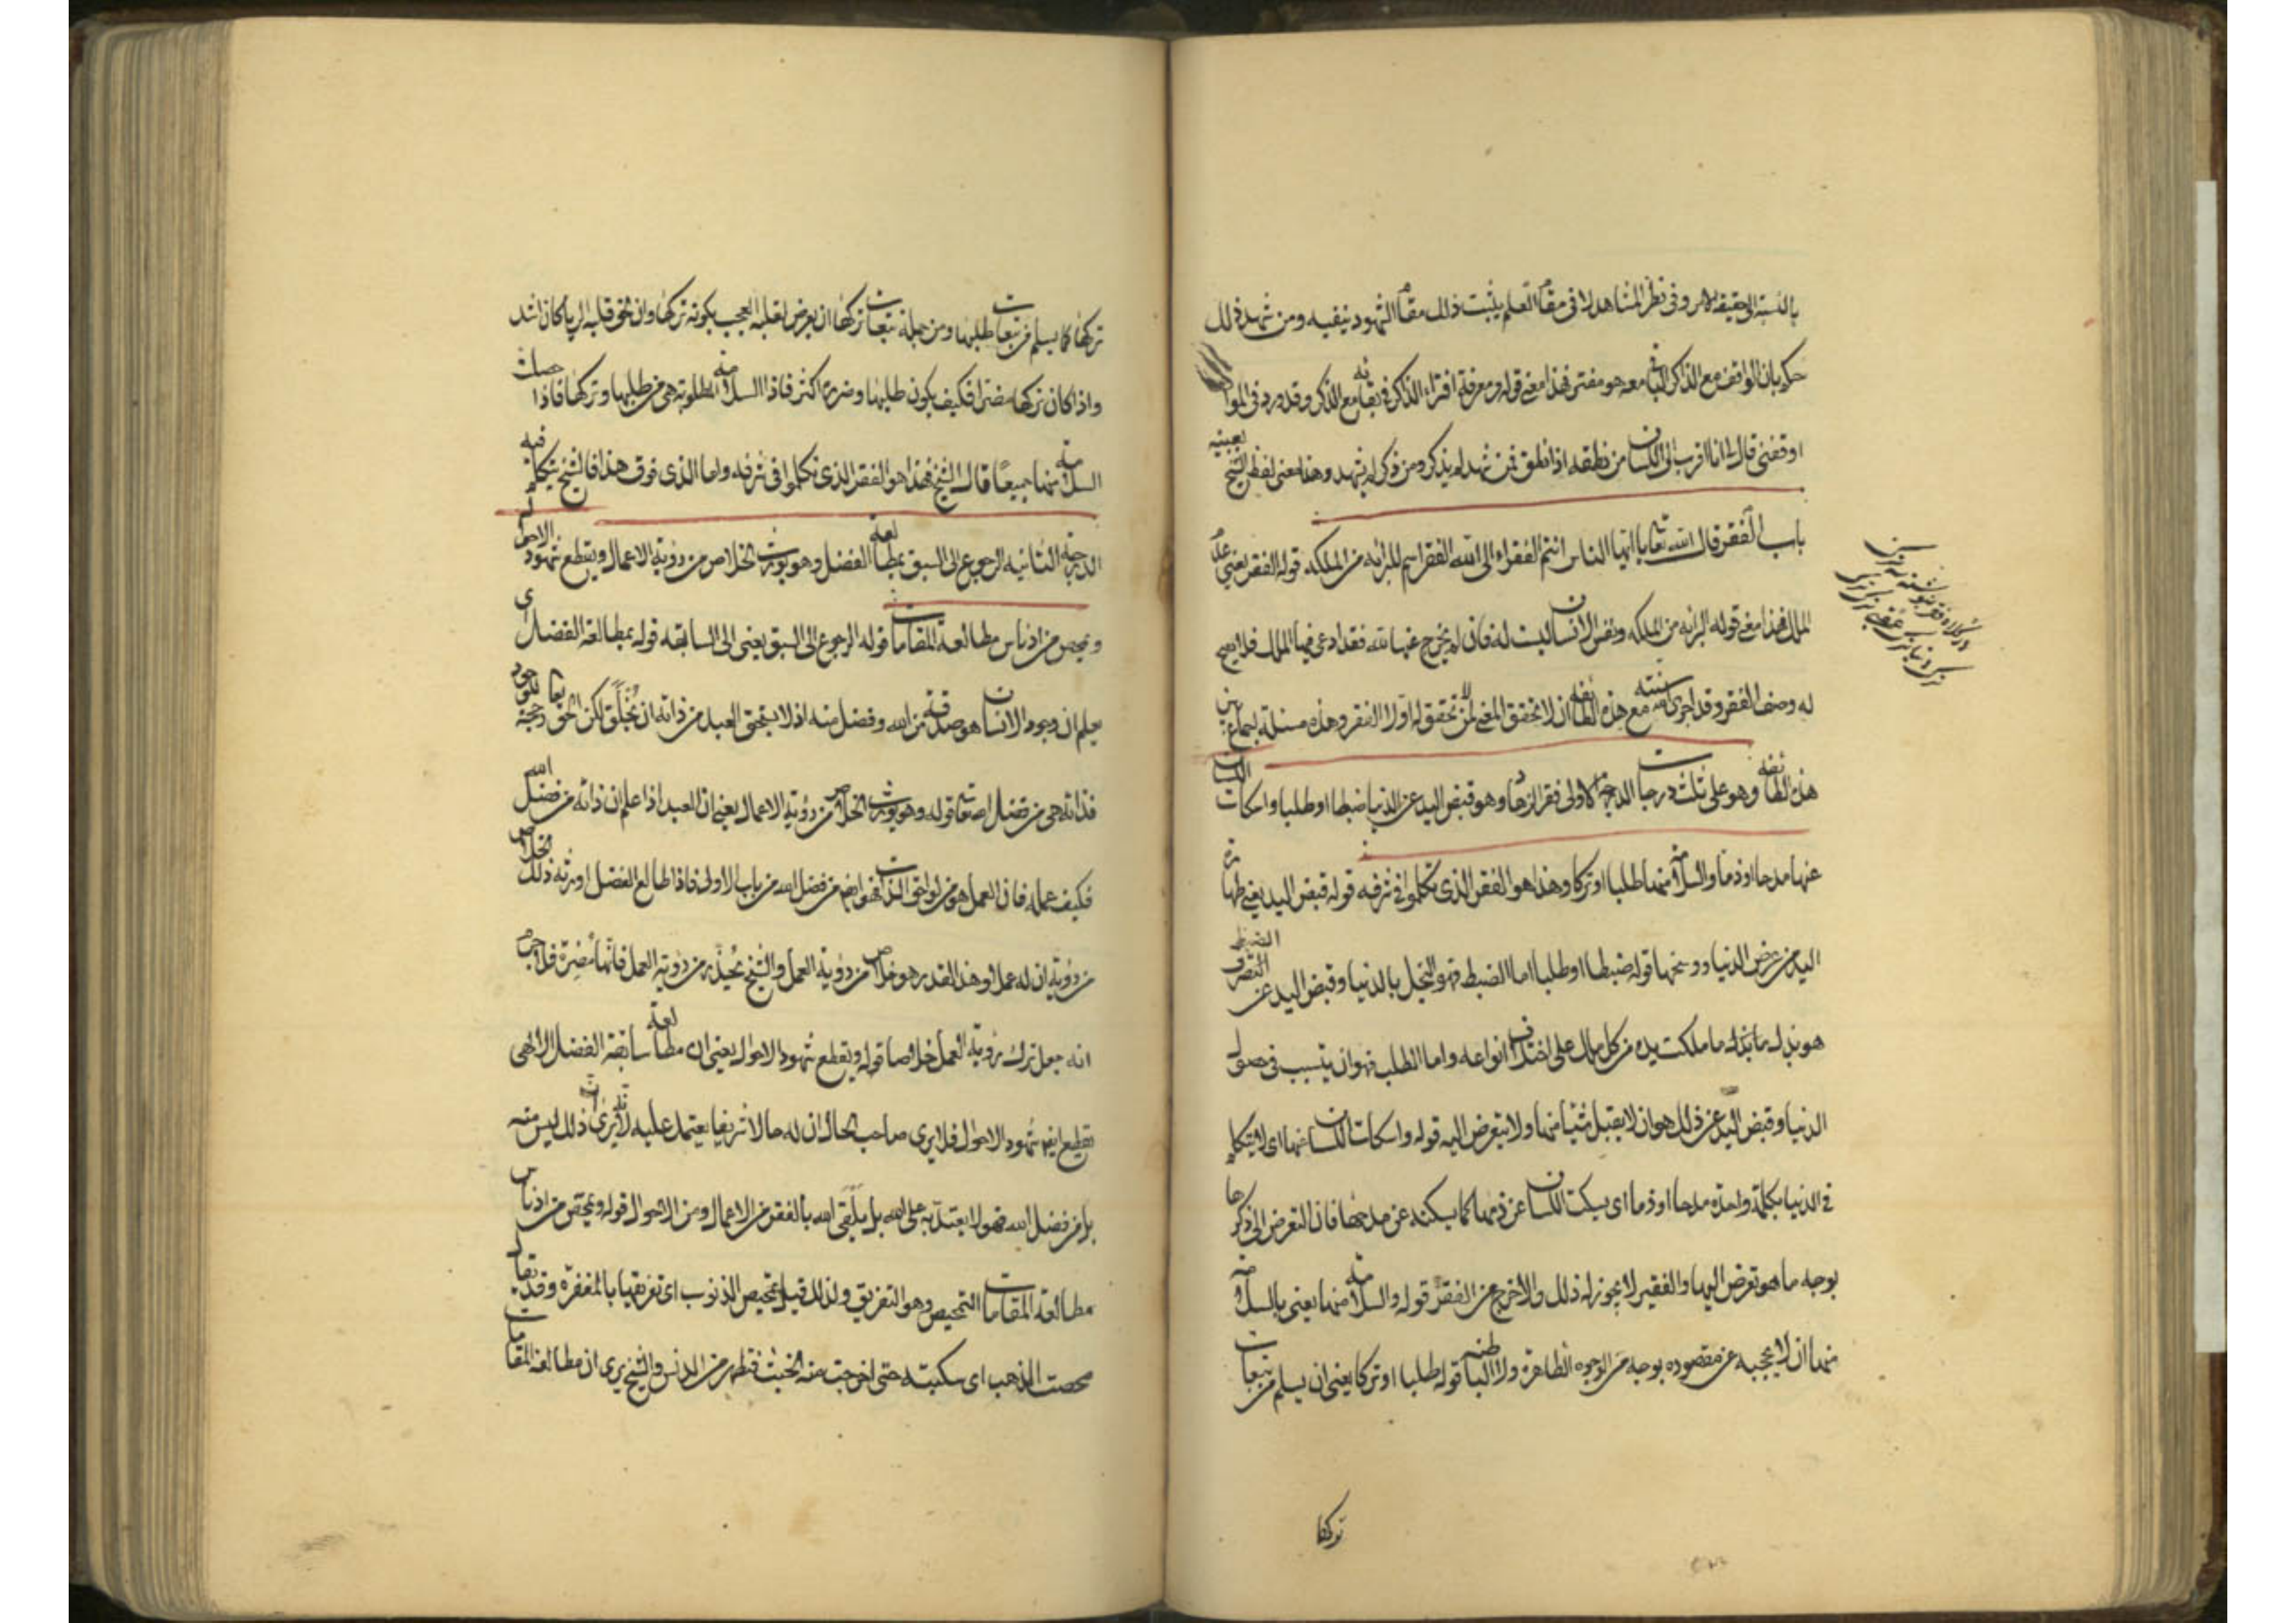 بالنسبة الى حقيقة الامر وفى نظر المشاهد لا فى مقام العلم يثبت ذلك مقام الشهود ينفيه ومن شهد ذلك
حكم بان الواقف مع الذاكر الباقى معه هو مفتر فهذا معنى قوله ومعرفة افتراء الذاكر فى بقائه مع الذكر وقد ورد فى المواقف
اوقفنى قال لى انا اقرب الى اللسان من نطقه اذا نطق فمن شهد لم يذكر ومن ذكر لم يشهد وهذا معنى لفظ الشيخ بعينه
باب الفقر قال الله تعالى يا ايها الناس انتم الفقراء الى الله الفقر اسم للبرائة من الملكة قوله الفقر يعنى عدم
الملك فهذا معنى قوله البرائة من الملكة ونفس الانسان ليست له فان لم يخرج عنها لله فقد ادعى فيها الملك فلا يصح
له وصف الفقر وقد اجرى الله سنته مع هذه الطائفة ان لا يتحقق المعنى لمن لا تحقق له اولا الفقر وهذه مسئلة اجماع بين
هذه الطائفة وهو على ثلث درجات الدرجة الاولى فقر الزهاد وهو قبض اليد عن الدنيا ضبطا او طلبا واسكات اللسان
عنها مدحا او ذما والسلامة منها طلبا او تركا وهذا هو الفقر الذى تكلموا فى شرفه قوله قبض اليد يعنى طهارة
اليد من عرض الدنيا ووسخها قوله ضبطا او طلبا اما الضبط فهو البخل بالدنيا وقبض اليد عن التصرف الضبط
هو بذل ما ملكت يده من كل مال على اختلاف انواعه واما الطلب فهو ان يتسبب فى حصول
الدنيا وقبض اليد عن ذلك هو ان لا يقبل شيئا منها ولا يتعرض اليه قوله واسكات اللسان عنها اى لا يتكلم
فى الدنيا بكلمة واحدة مدحا او ذما اى يسكت اللسان عن ذمها كما يسكته عن مدحها فان التعرض الى ذكرها
بوجه ما هو تعرض اليها والفقير لا يجوز له ذلك والا خرج عن الفقر قوله والسلامة منها يعنى بالسلامة
منها ان لا يحجبه عن مقصوده بوجه من الوجوه الظاهرة ولا الباطنة قوله طلبا او تركا يعنى ان يسلم من تبعات
تركها
تركها كما يسلم من تبعات طلبها ومن جملة تبعات تركها ان يعرض لقلبه العجب بكونه تركها وان لحق قلبه الرياء كان اشد
واذا كان تركها مضرا فكيف يكون طلبها وضرره اكثر فاذا السلامة المطلوبة هى من طلبها وتركها فاذا حصلت
السلامة منها جميعا قال الشيخ فهذا هو الفقر الذى تكلموا فى شرفه واما الذى فوق هذا فالشيخ يتكلم فيه
الدرجة الثانية الرجوع الى السبق بمطالعة الفضل وهو يورث الخلاص من رؤية الاعمال ويقطع شهود الاحوال
ويمحص من ادناس مطالعة المقامات قوله الرجوع الى السبق يعنى الى السابقة قوله بمطالعة الفضل اى
يعلم ان وجود الانسان هو صدقة من الله وفضل منه اذ لا يستحق العبد من ذاته ان يخلق لكن الحق
فذاته هى من فضل الله تعالى قوله وهو يورث الخلاص من رؤية الاعمال يعنى ان العبد اذا علم ان ذاته من فضل الله
فكيف عمله فان العمل هو من لواحق الذات فهو ايضا من فضل الله من باب الاولى فاذا طالع الفضل اورثه ذلك الخلاص
من رؤية ان له عملا وهذا القدر هو خلاص من رؤية العمل والشيخ يحذر من رؤية العمل فانها مضرة فلاجرم
انه جعل ترك رؤية العمل خلاصا قوله ويقطع شهود الاحوال يعنى ان مطالعة سابقة الفضل الالهى
تقطع ايضا شهود الاحوال فلا يرى صاحب الحال ان له حالا شريفا يعتمد عليه لانه يرى ان ذلك ليس منه
بل من فضل الله فهو لا يعتد به على الله بل يلقى الله بالفقر من الاعمال ومن الاحوال قوله ويمحص من ادناس
مطالعة المقامات التمحيص وهو التفريق ولذلك قيل تمحيص الذنوب اى تفريقها بالمغفرة وقد يقال
محصت الذهب اى سكبته حتى اخرجت منه الخبث فتطهر من الدنس والشيخ يرى ان مطالعة المقامات